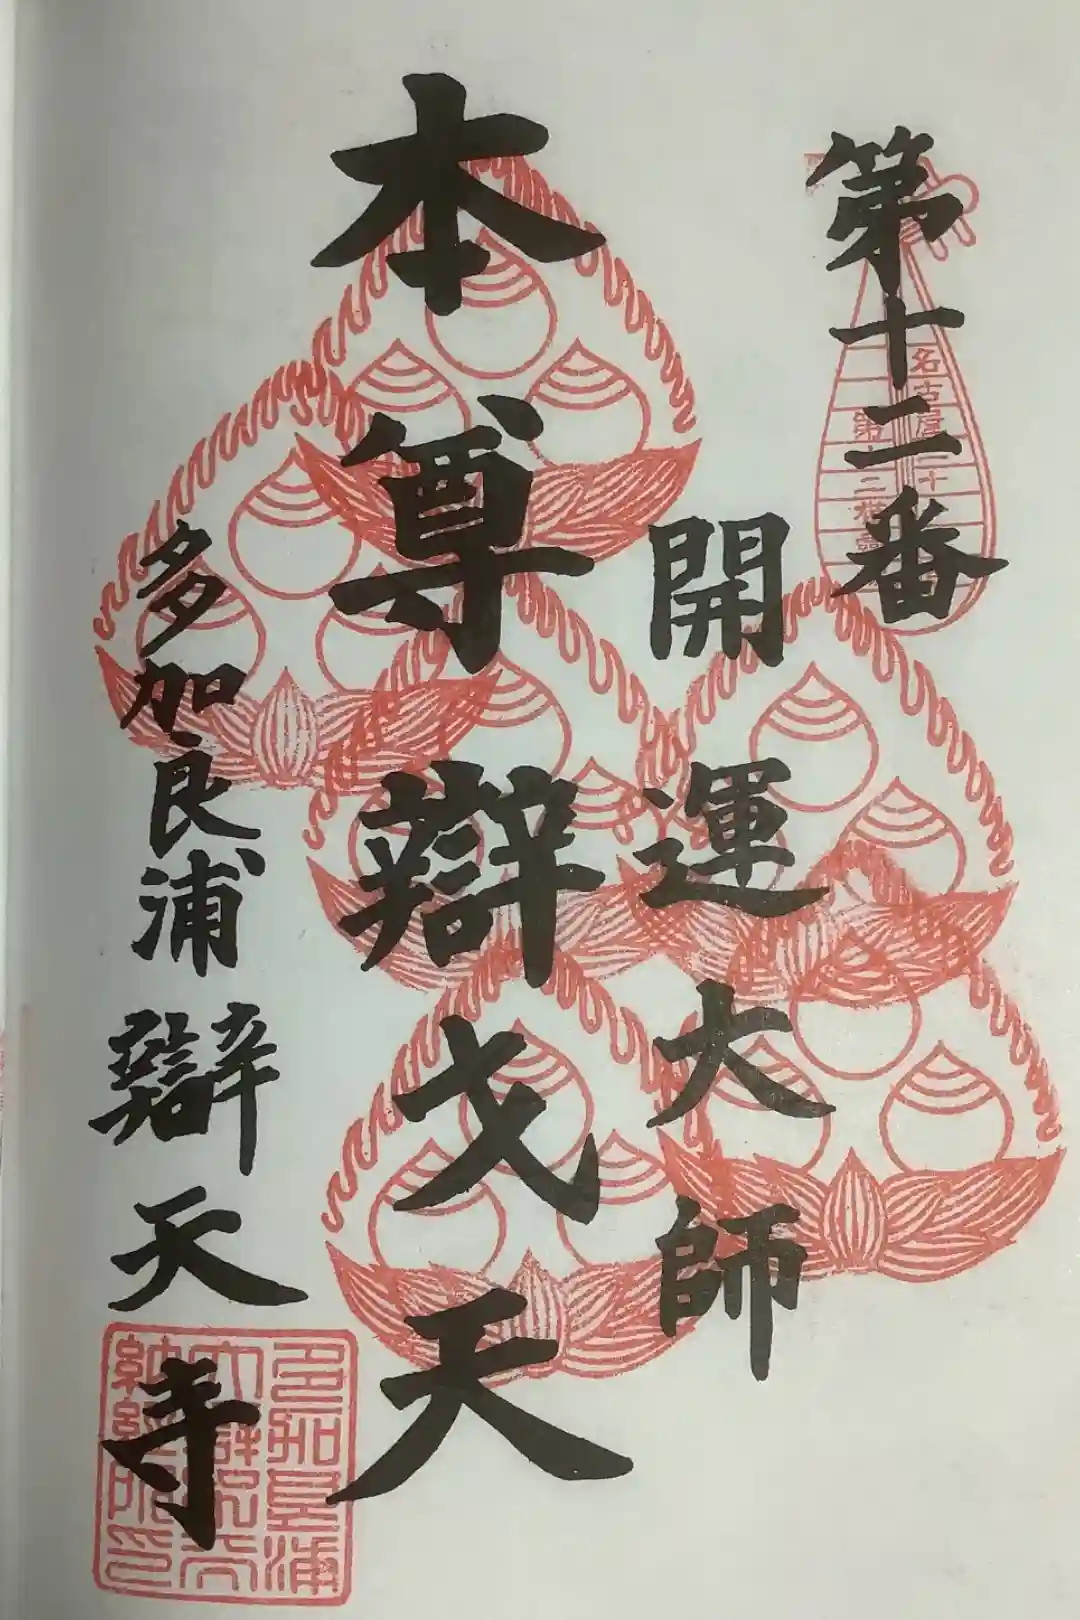 第十二番
名古屋二十
第十二番霊
開運大師
本尊辯才天
多加良浦辯天寺
多加良浦
納経院印